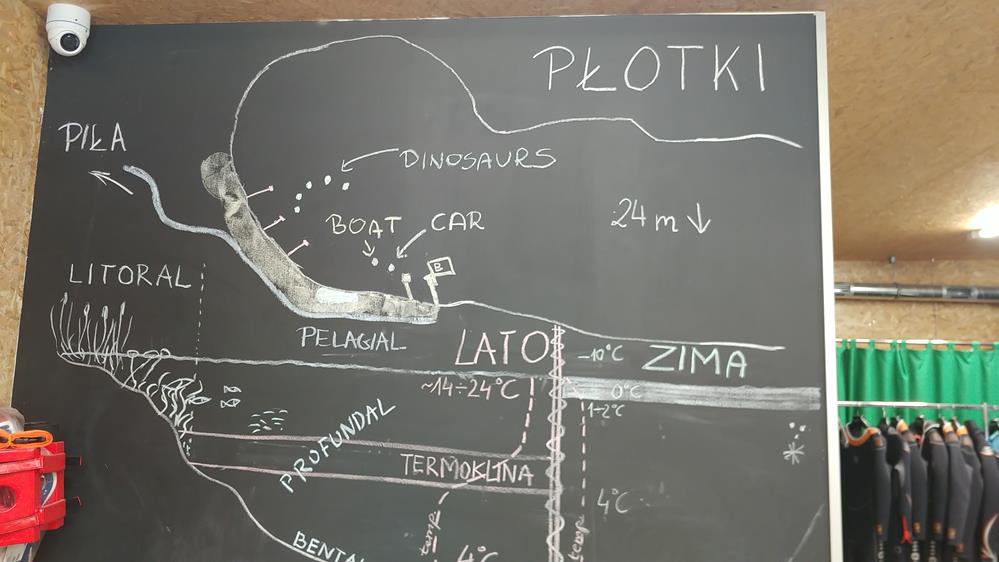 PŁOTKI
PIŁA
DINOSAURS
BOAT
CAR
24 m ↓
B
LITORAL
PELAGIAL
LATO
-10°C
ZIMA
~14÷24°C
0°C
1÷2°C
PROFUNDAL
TERMOKLINA
4°C
temp
temp
4°C
BENTAL